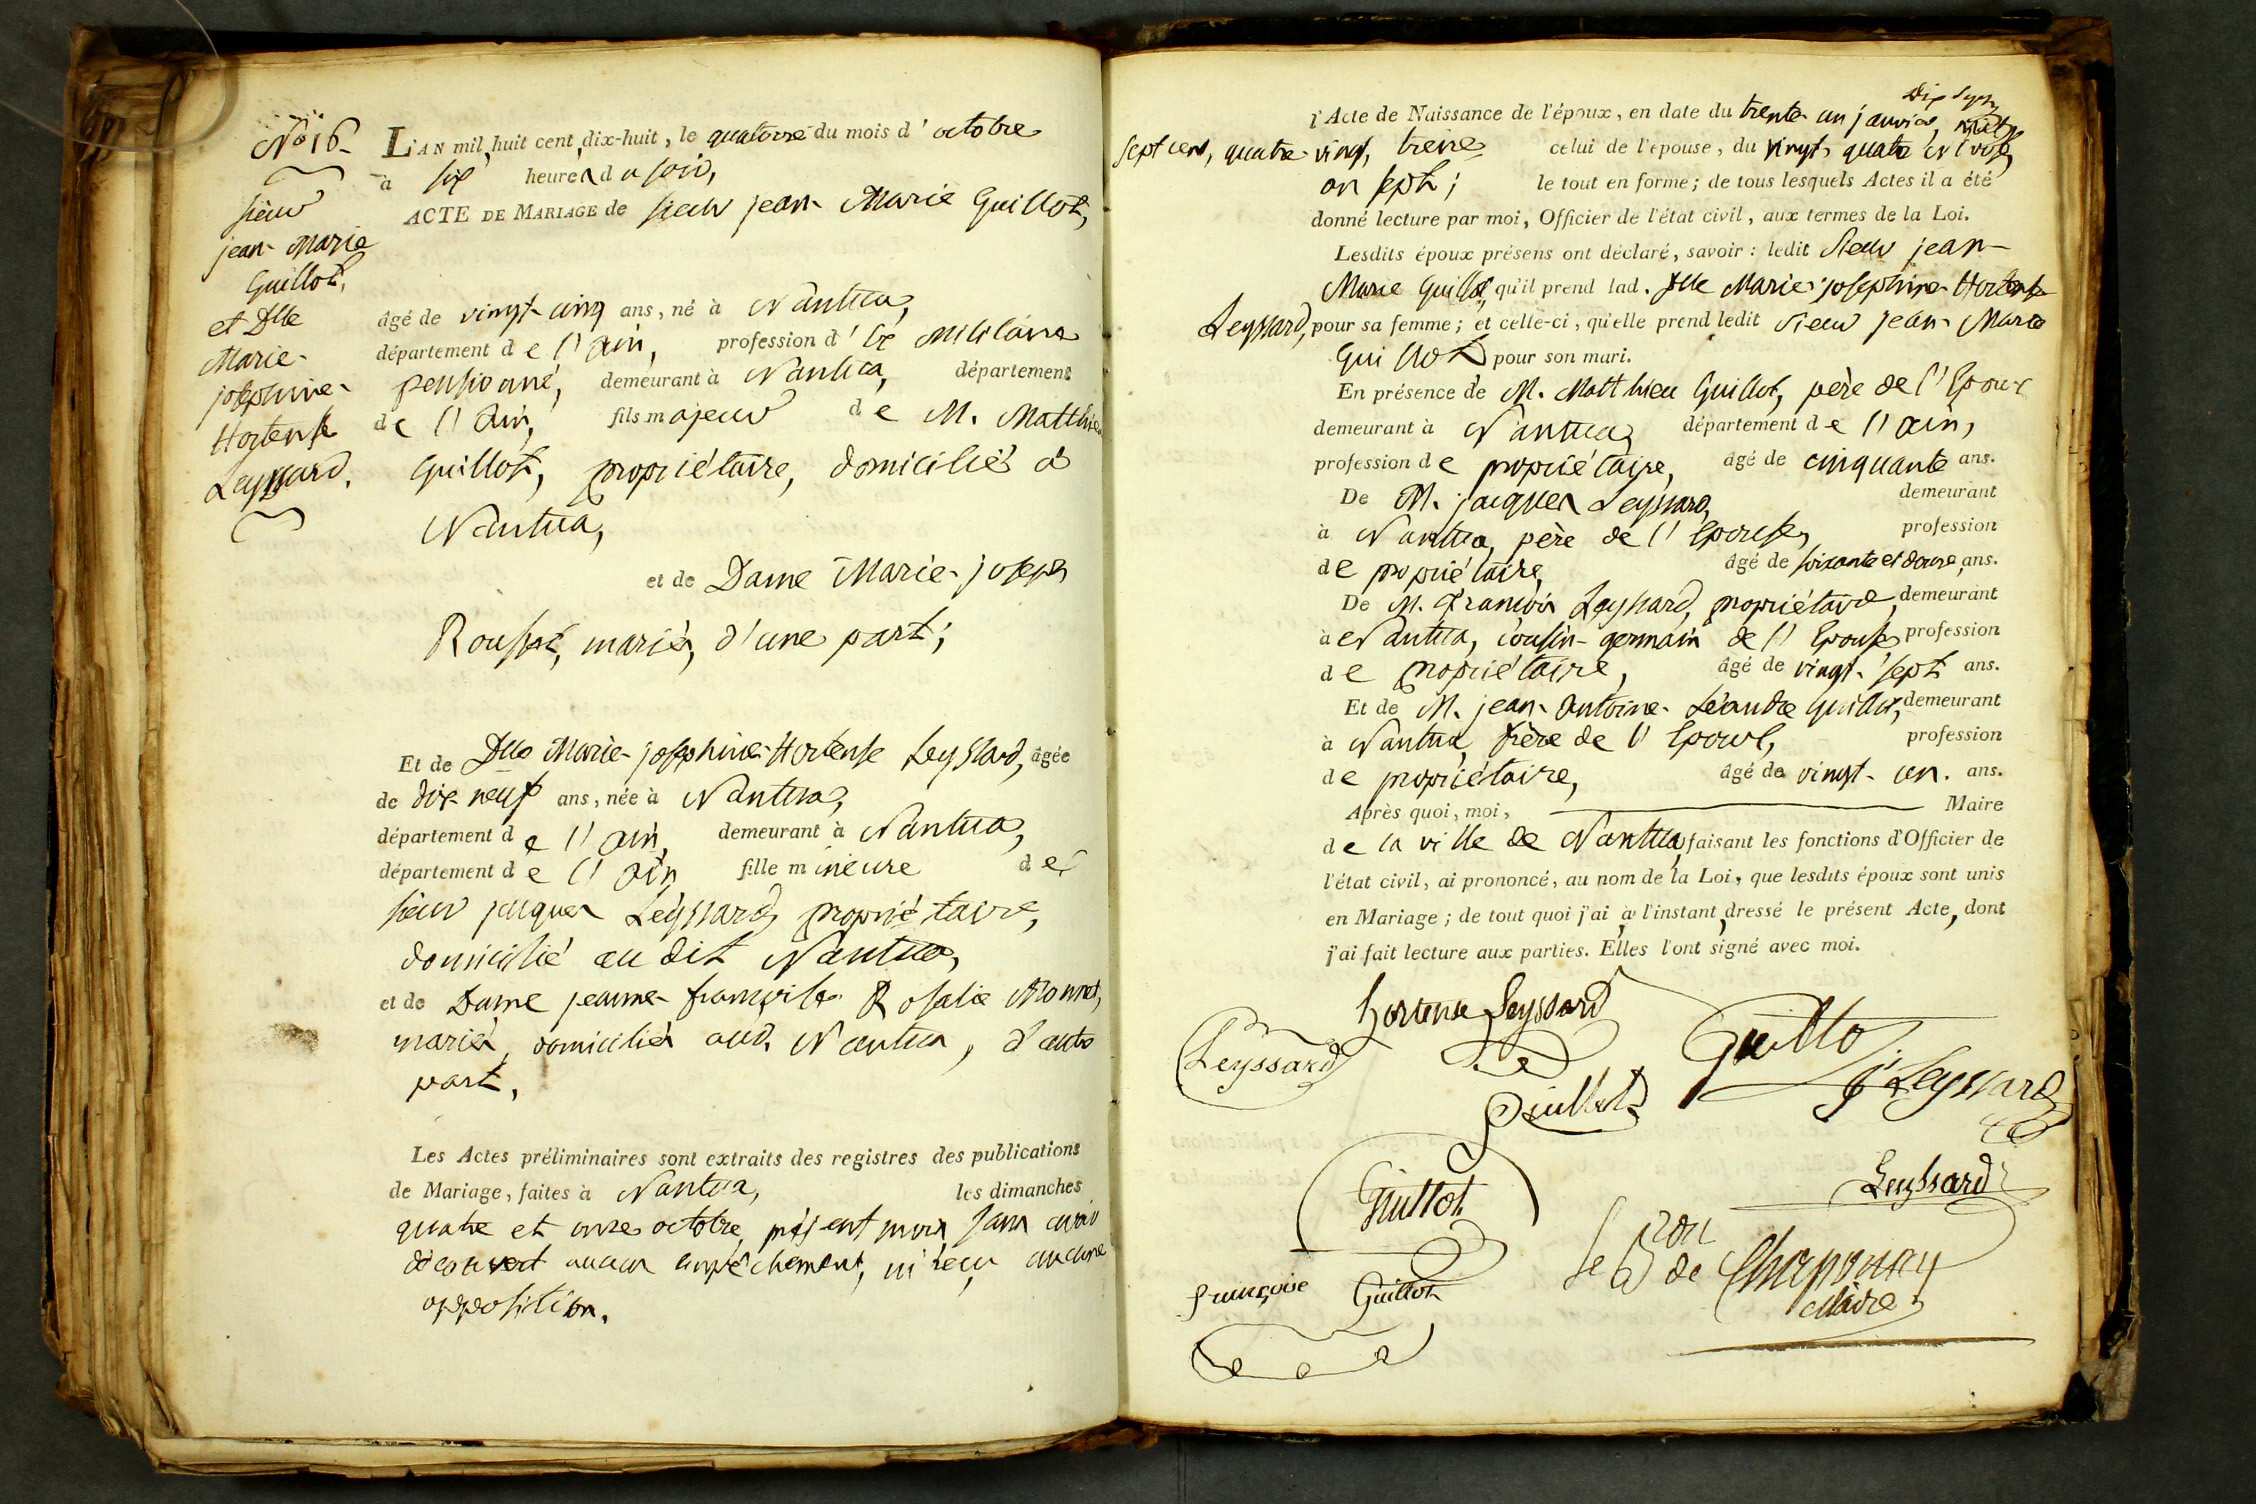 No 16.
sieur
jean-Marie
Guillot,
et Dlle
Marie-
josephine-
Hortense
Leyssard.
L'AN mil huit cent dix-huit, le quatorze du mois d'octobre
à six heures du soir,
ACTE DE MARIAGE de sieur jean-Marie Guillot,
âgé de vingt-cinq ans, né à Nantua,
département de l'ain, profession d' militaire
pensionné, demeurant à Nantua, département
de l'ain, fils majeur de M. Matthieu
Guillot, propriétaire, domicilié à
Nantua,
et de Dame Marie-joseph
Rousset, mariés, d'une part;
Et de Dlle Marie-josephine-Hortense Leyssard, âgée
de dix-neuf ans, née à Nantua,
département de l'ain, demeurant à Nantua,
département de l'ain fille mineure de
sieur jacques Leyssard, propriétaire,
domicilié audit Nantua,
et de Dame jeanne-françoise Rosalie Monnet,
mariés, domiciliés aud. Nantua, d'autre
part.
Les Actes préliminaires sont extraits des registres des publications
de Mariage, faites à Nantua, les dimanches
quatre et onze octobre, présent mois, sans avoir
découvert aucun empêchement, ni reçu aucune
opposition.
l'Acte de Naissance de l'époux, en date du trente-un janvier, Dix sept
sept cent, quatre-vingt, treize celui de l'épouse, du vingt-quatre nivose,
an sept; le tout en forme; de tous lesquels Actes il a été
donné lecture par moi, Officier de l'état civil, aux termes de la Loi.
Lesdits époux présens ont déclaré, savoir: ledit Sieur jean-
Marie Guillot, qu'il prend lad. Dlle Marie-josephine-Hortense
Leyssard, pour sa femme; et celle-ci, qu'elle prend ledit Sieur jean-Marie
Guillot pour son mari.
En présence de M. Matthieu Guillot, père de l'Epoux
demeurant à Nantua, département de l'ain,
profession de propriétaire, âgé de cinquante ans.
De M. jacques Leyssard, demeurant
à Nantua, père de l'Epouse, profession
de propriétaire, âgé de soixante et douze, ans.
De M. François Leyssard, propriétaire, demeurant
à Nantua, cousin-germain de l'Epouse profession
de propriétaire, âgé de vingt-sept ans.
Et de M. jean-antoine-Léandre Guillot, demeurant
à Nantua, frère de l'Epoux, profession
de propriétaire, âgé de vingt-un. ans.
Après quoi, moi, Maire
de la ville de Nantua, faisant les fonctions d'Officier de
l'état civil, ai prononcé, au nom de la Loi, que lesdits époux sont unis
en Mariage; de tout quoi j'ai, à l'instant, dressé le présent Acte, dont
j'ai fait lecture aux parties. Elles l'ont signé avec moi.
hortense Leyssard
Leyssard
Guillo
Guillot
j Leyssard
Guillot
Leyssard
françoise Guillot
le Bon de Chaponay
Maire